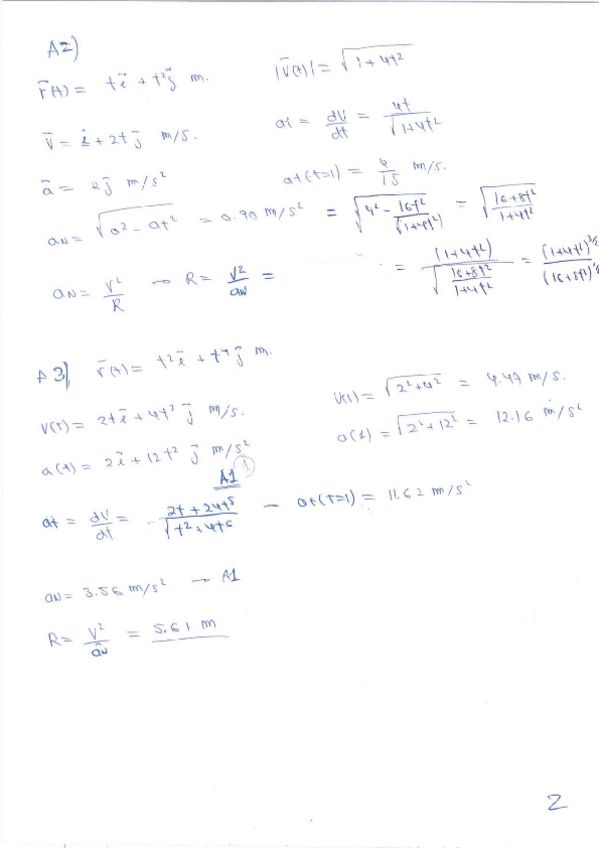 A2)
r̄(t) = t ī + t² j̄ m.
|v̄(t)| = √(1+4t²)
v̄ = ī + 2t j̄ m/s.
at = dV/dt = 4t/√(1+4t²)
ā = 2 j̄ m/s²
at(t=1) = 4/√5 m/s.
aN = √(a² - at²) = 0.90 m/s² = √(4² - 16t²/(√(1+4t²))) = √((16+8t²)/(1+4t²))
aN = V²/R → R = V²/aN = = (1+4t²)/√((16+8t²)/(1+4t²)) = (1+4t²)^3/2/(16+8t²)^1/2
A3) r̄(t) = t² ī + t⁴ j̄ m.
V(t) = 2t ī + 4t³ j̄ m/s.
V(1) = √(2²+4²) = 4.47 m/s.
a(t) = 2 ī + 12t² j̄ m/s²
a(1) = √(2²+12²) = 12.16 m/s²
A1 1
at = dV/dt = (2t+24t⁵)/√(t²+4t⁶) → at(t=1) = 11.62 m/s²
aN = 3.56 m/s² → A1
R = V²/aN = 5.61 m
2